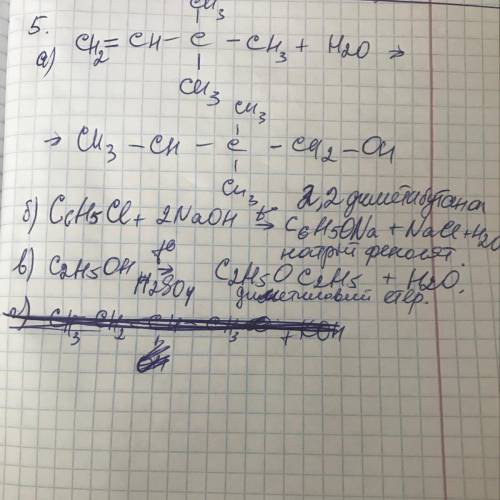 5.
CH3
а) CH2 = CH - C - CH3 + H2O →
CH3
CH3
→ CH3 - CH - C - CH2 - OH
CH3
2,2 диметабутана
б) C6H5Cl + 2NaOH → C6H5ONa + NaCl + H2O
натрій фенолят.
в) C2H5OH → C2H5OC2H5 + H2O.
H2SO4 диметиловий етер.
CH3 CH2 CH CH3 + KOH